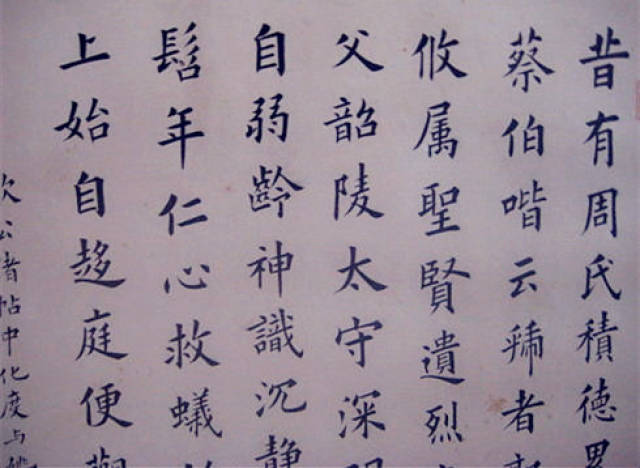 昔有周氏積德累
蔡伯喈云者
攸属聖賢遺烈
父韶陵太守深
自弱齡神識沉静
髫年仁心救蟻
上始自趍庭便觀
公書帖中化度与